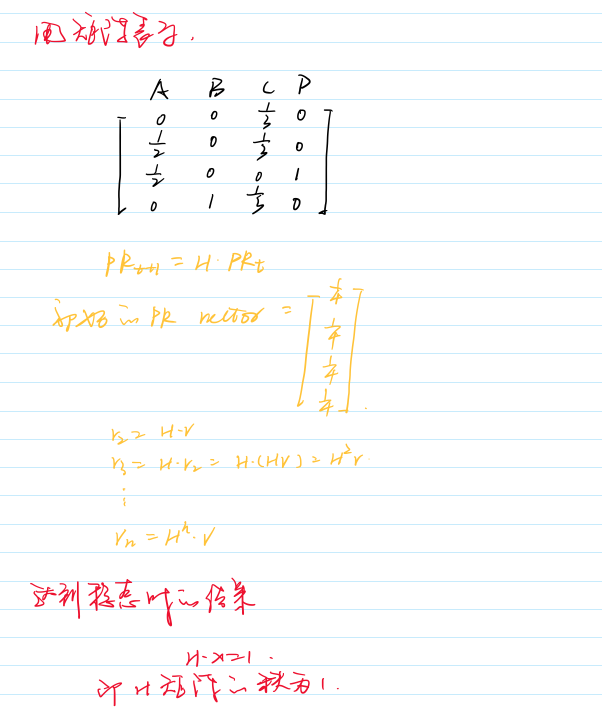 用矩阵表示.
A B C D
0 0 1/3 0
1/2 0 1/3 0
1/2 0 0 1
0 1 1/3 0
PR_{t+1} = H · PR_t
初始的 PR vector =
1/4
1/4
1/4
1/4
.
r_2 = H·v
r_3 = H·r_2 = H·(Hv) = H^2 v.
⋮
V_n = H^n · V
达到稳态时的结果
H·x=1 .
即 H 矩阵的秩为 1.